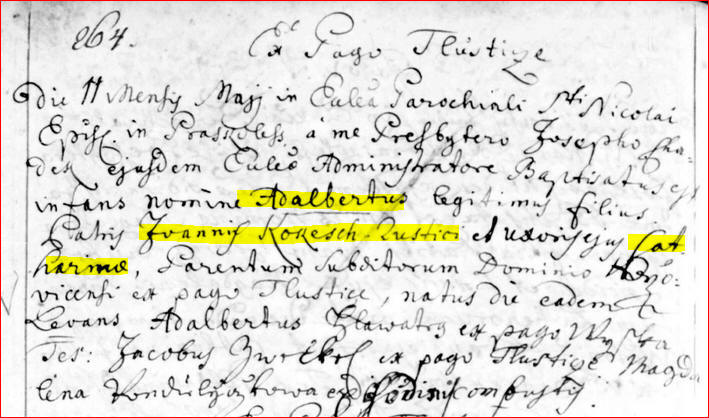 264.
Ex Pago Tlustice
die 11 Mensis Maij in Eccle&a Parochiali Sti Nicolai
Episc. in Praskoless a me Presbytero Josepho
ejusdem Administratore Baptisatus est
infans nomine Adalbertus legitimus filius
Patris Joannis Kokesch Rustici et uxoris ejus Cat
harinæ, Parentum Subditorum Dominio
vicensi ex pago Tlustice, natus die eadem
Levans Adalbertus Hlawatey ex pago Wyska
Tes: Jacobus ex pago Tlustice Magda
lena